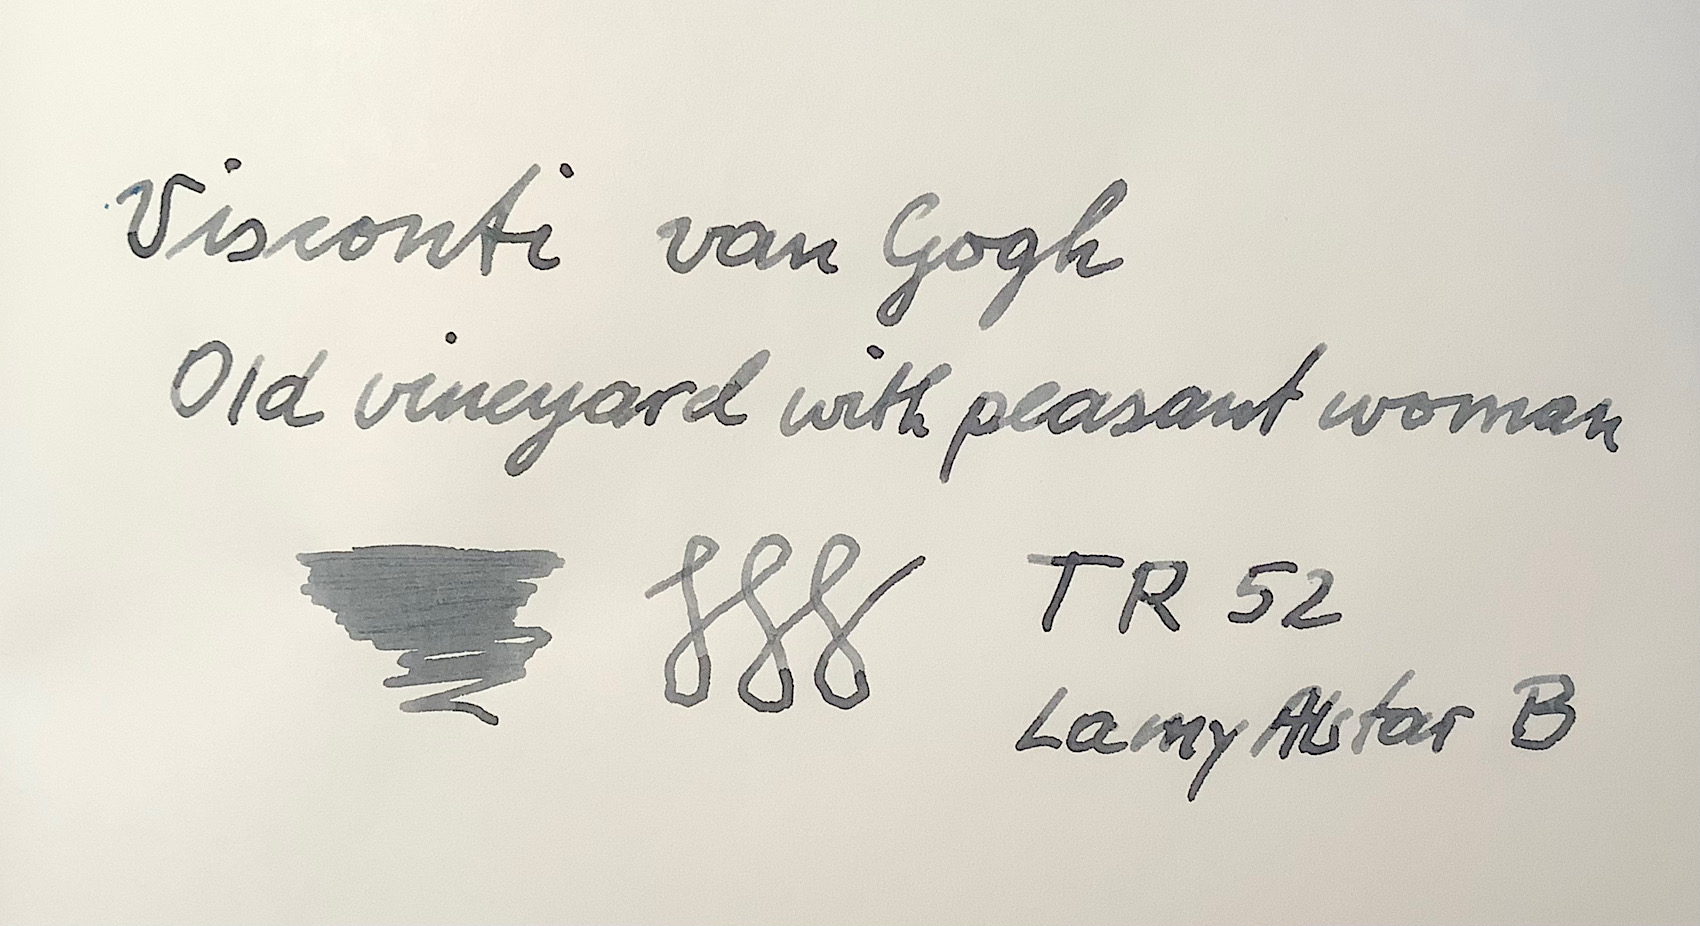 Visconti van Gogh
Old vineyard with peasant woman
TR 52
Lamy Alstar B